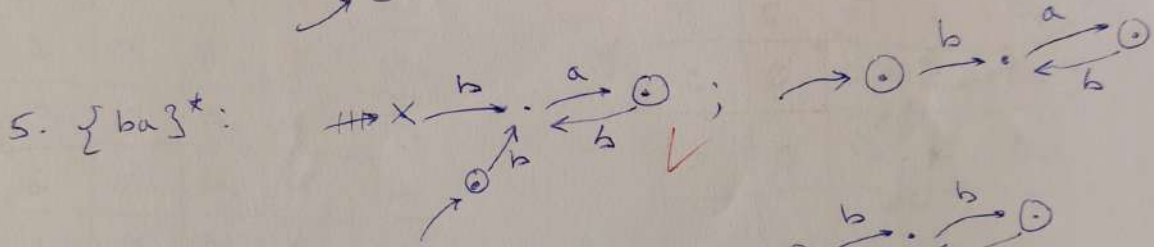 b a
5. {ba}*: b a b ; b b a b
b
b b